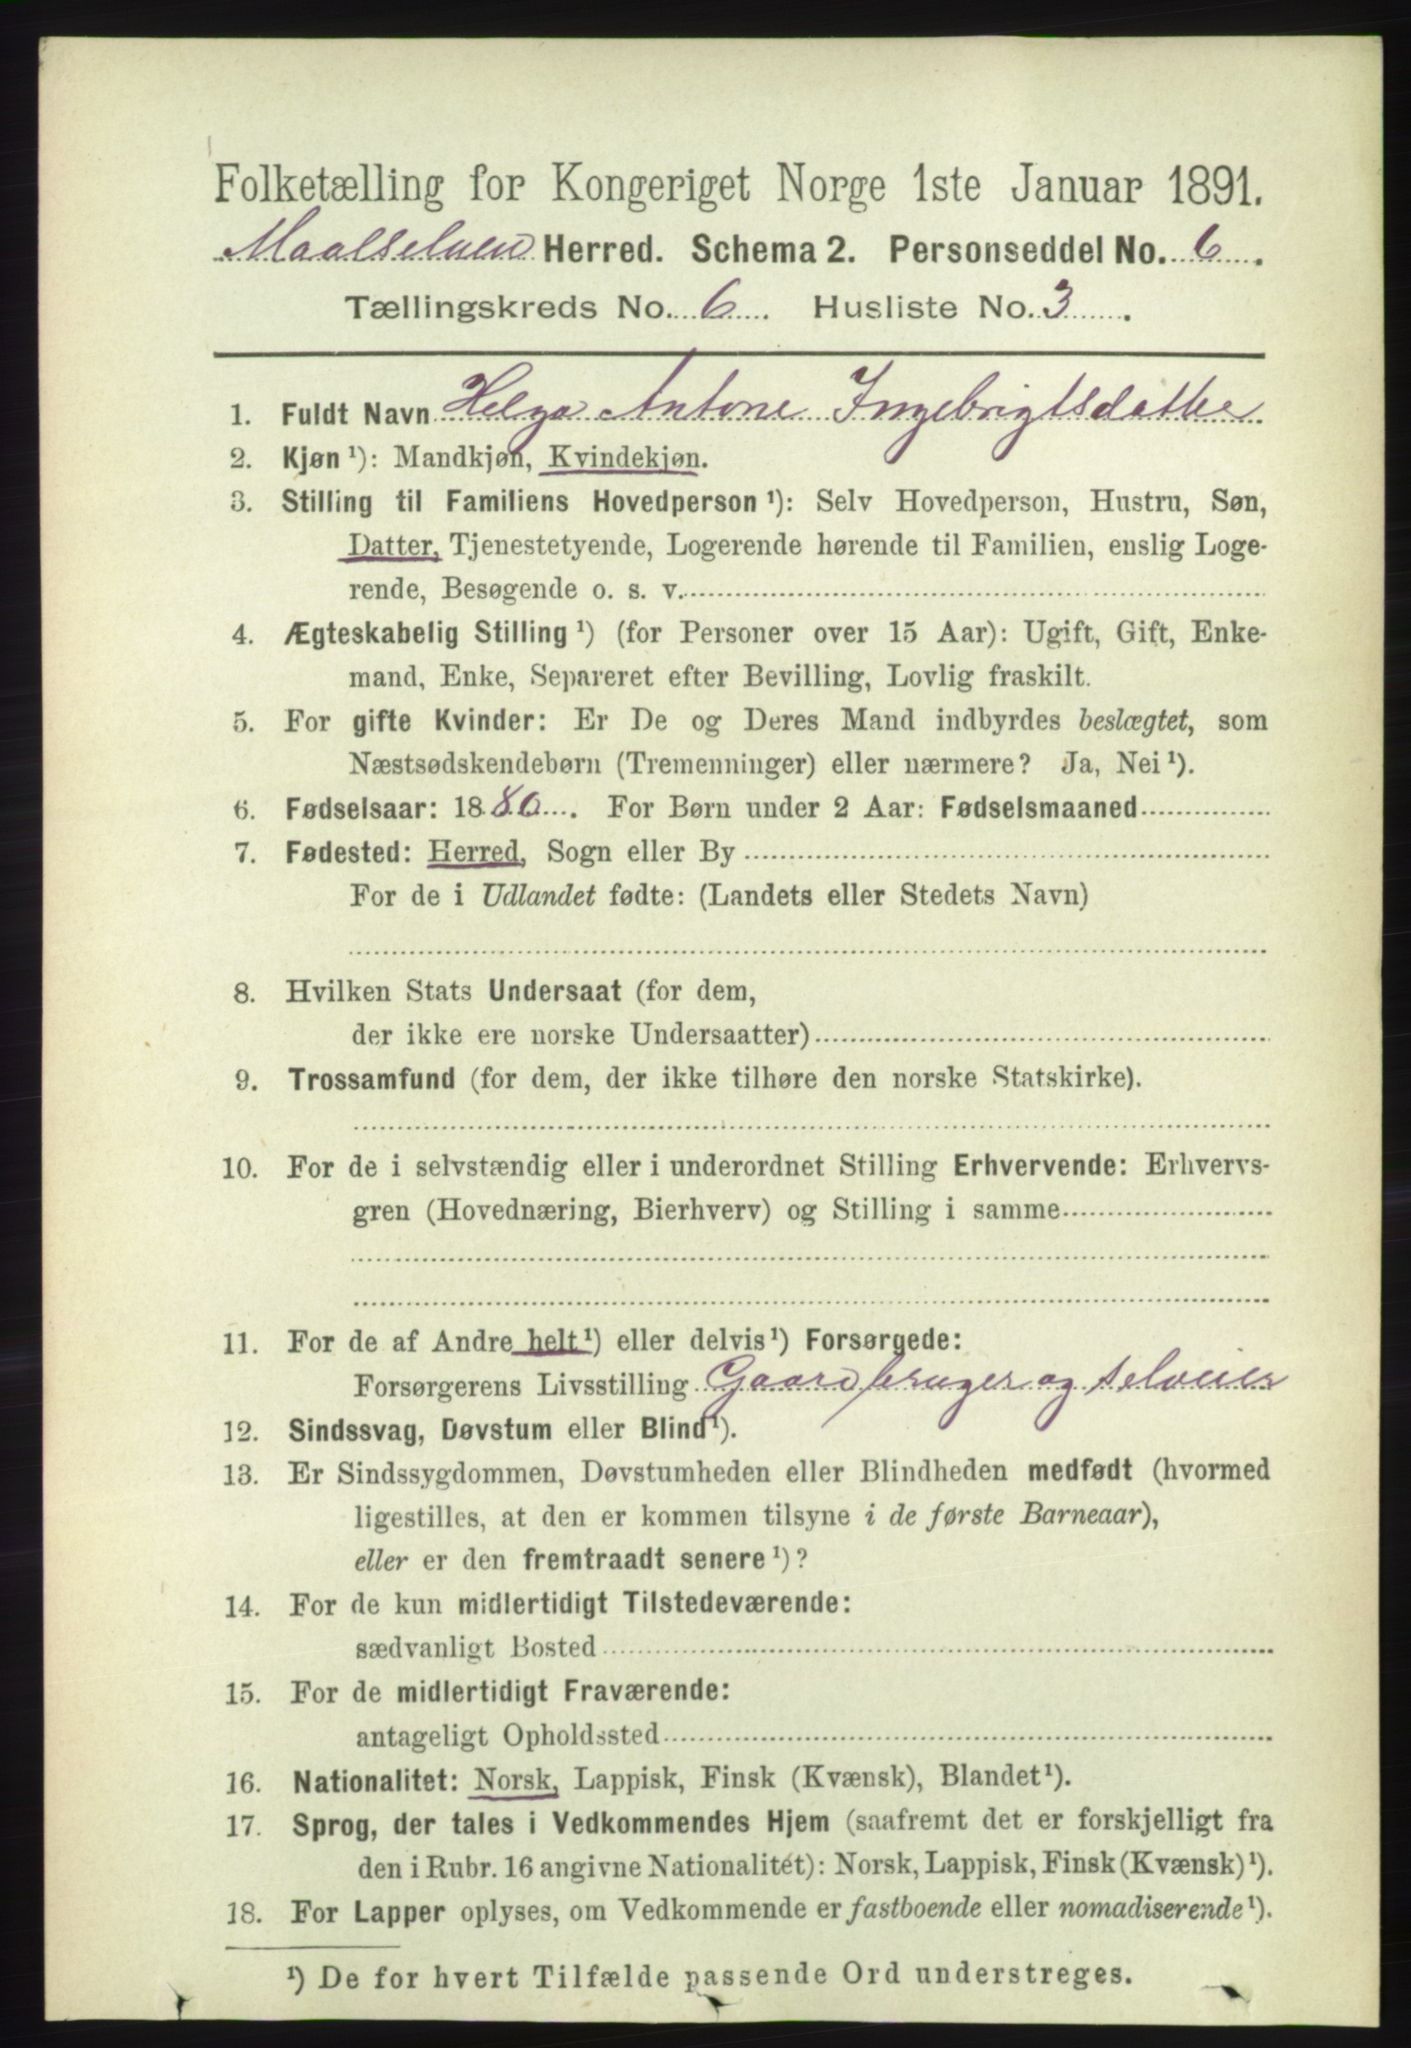 Folketælling for Kongeriget Norge 1ste Januar 1891.
Maalselven Herred. Schema 2. Personseddel No. 6.
Tællingskreds No. 6. Husliste No. 3.
1. Fuldt Navn Helga Antone Ingebrigtsdatter
2. Kjøn ¹): Mandkjøn, Kvindekjøn.
3. Stilling til Familiens Hovedperson ¹): Selv Hovedperson, Hustru, Søn,
Datter, Tjenestetyende, Logerende hørende til Familien, enslig Loge-
rende, Besøgende o. s. v.
4. Ægteskabelig Stilling ¹) (for Personer over 15 Aar): Ugift, Gift, Enke-
mand, Enke, Separeret efter Bevilling, Lovlig fraskilt.
5. For gifte Kvinder: Er De og Deres Mand indbyrdes beslægtet, som
Næstsødskendebørn (Tremenninger) eller nærmere? Ja, Nei ¹).
6. Fødselsaar: 1880. For Børn under 2 Aar: Fødselsmaaned
7. Fødested: Herred, Sogn eller By
For de i Udlandet fødte: (Landets eller Stedets Navn)
8. Hvilken Stats Undersaat (for dem,
der ikke ere norske Undersaatter)
9. Trossamfund (for dem, der ikke tilhøre den norske Statskirke).
10. For de i selvstændig eller i underordnet Stilling Erhvervende: Erhvervs-
gren (Hovednæring, Bierhverv) og Stilling i samme
11. For de af Andre helt ¹) eller delvis ¹) Forsørgede:
Forsørgerens Livsstilling Gaardbruger og selveier
12. Sindssvag, Døvstum eller Blind ¹).
13. Er Sindssygdommen, Døvstumheden eller Blindheden medfødt (hvormed
ligestilles, at den er kommen tilsyne i de første Barneaar),
eller er den fremtraadt senere ¹)?
14. For de kun midlertidigt Tilstedeværende:
sædvanligt Bosted
15. For de midlertidigt Fraværende:
antageligt Opholdssted
16. Nationalitet: Norsk, Lappisk, Finsk (Kvænsk), Blandet ¹).
17. Sprog, der tales i Vedkommendes Hjem (saafremt det er forskjelligt fra
den i Rubr. 16 angivne Nationalitet): Norsk, Lappisk, Finsk (Kvænsk) ¹).
18. For Lapper oplyses, om Vedkommende er fastboende eller nomadiserende ¹).
¹) De for hvert Tilfælde passende Ord understreges.